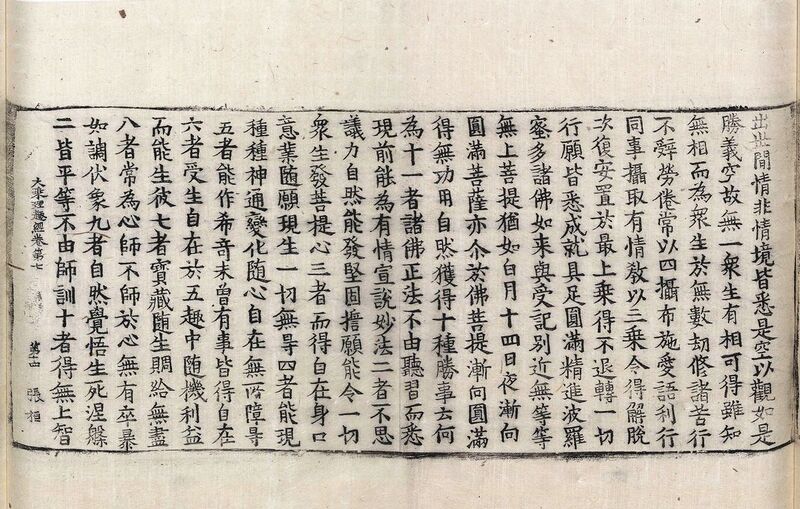 出世間情非情境皆悉是空以觀如是
勝義空故無一衆生有相可得雖知
無相而為衆生於無數劫修諸苦行
不辝勞倦常以四攝布施愛語利行
同事攝取有情敎以三乗令得解脫
次復安置於最上乗得不退轉一切
行願皆悉成就具足圓滿精進波羅
蜜多諸佛如來與受記別近無等等
無上菩提猶如白月十四日夜漸向
圓滿菩薩亦尒於佛菩提漸向圓滿
得無功用自然獲得十種勝事云何
為十一者諸佛正法不由聽習而悉
現前能為有情宣說妙法二者不思
議力自然能發堅固擔願能令一切
衆生發菩提心三者而得自在身口
意業隨願現生一切無㝵四者能現
種種神通變化隨心自在無所障㝵
五者能作希奇未曾有事皆得自在
六者受生自在於五趣中随機利益
而能生彼七者寶藏随生賙給無盡
八者常為心師不師於心無有卒暴
如調伏象九者自然覺悟生死涅槃
二皆平等不由師訓十者得無上智
大乗理趣經卷第七 第十四 張